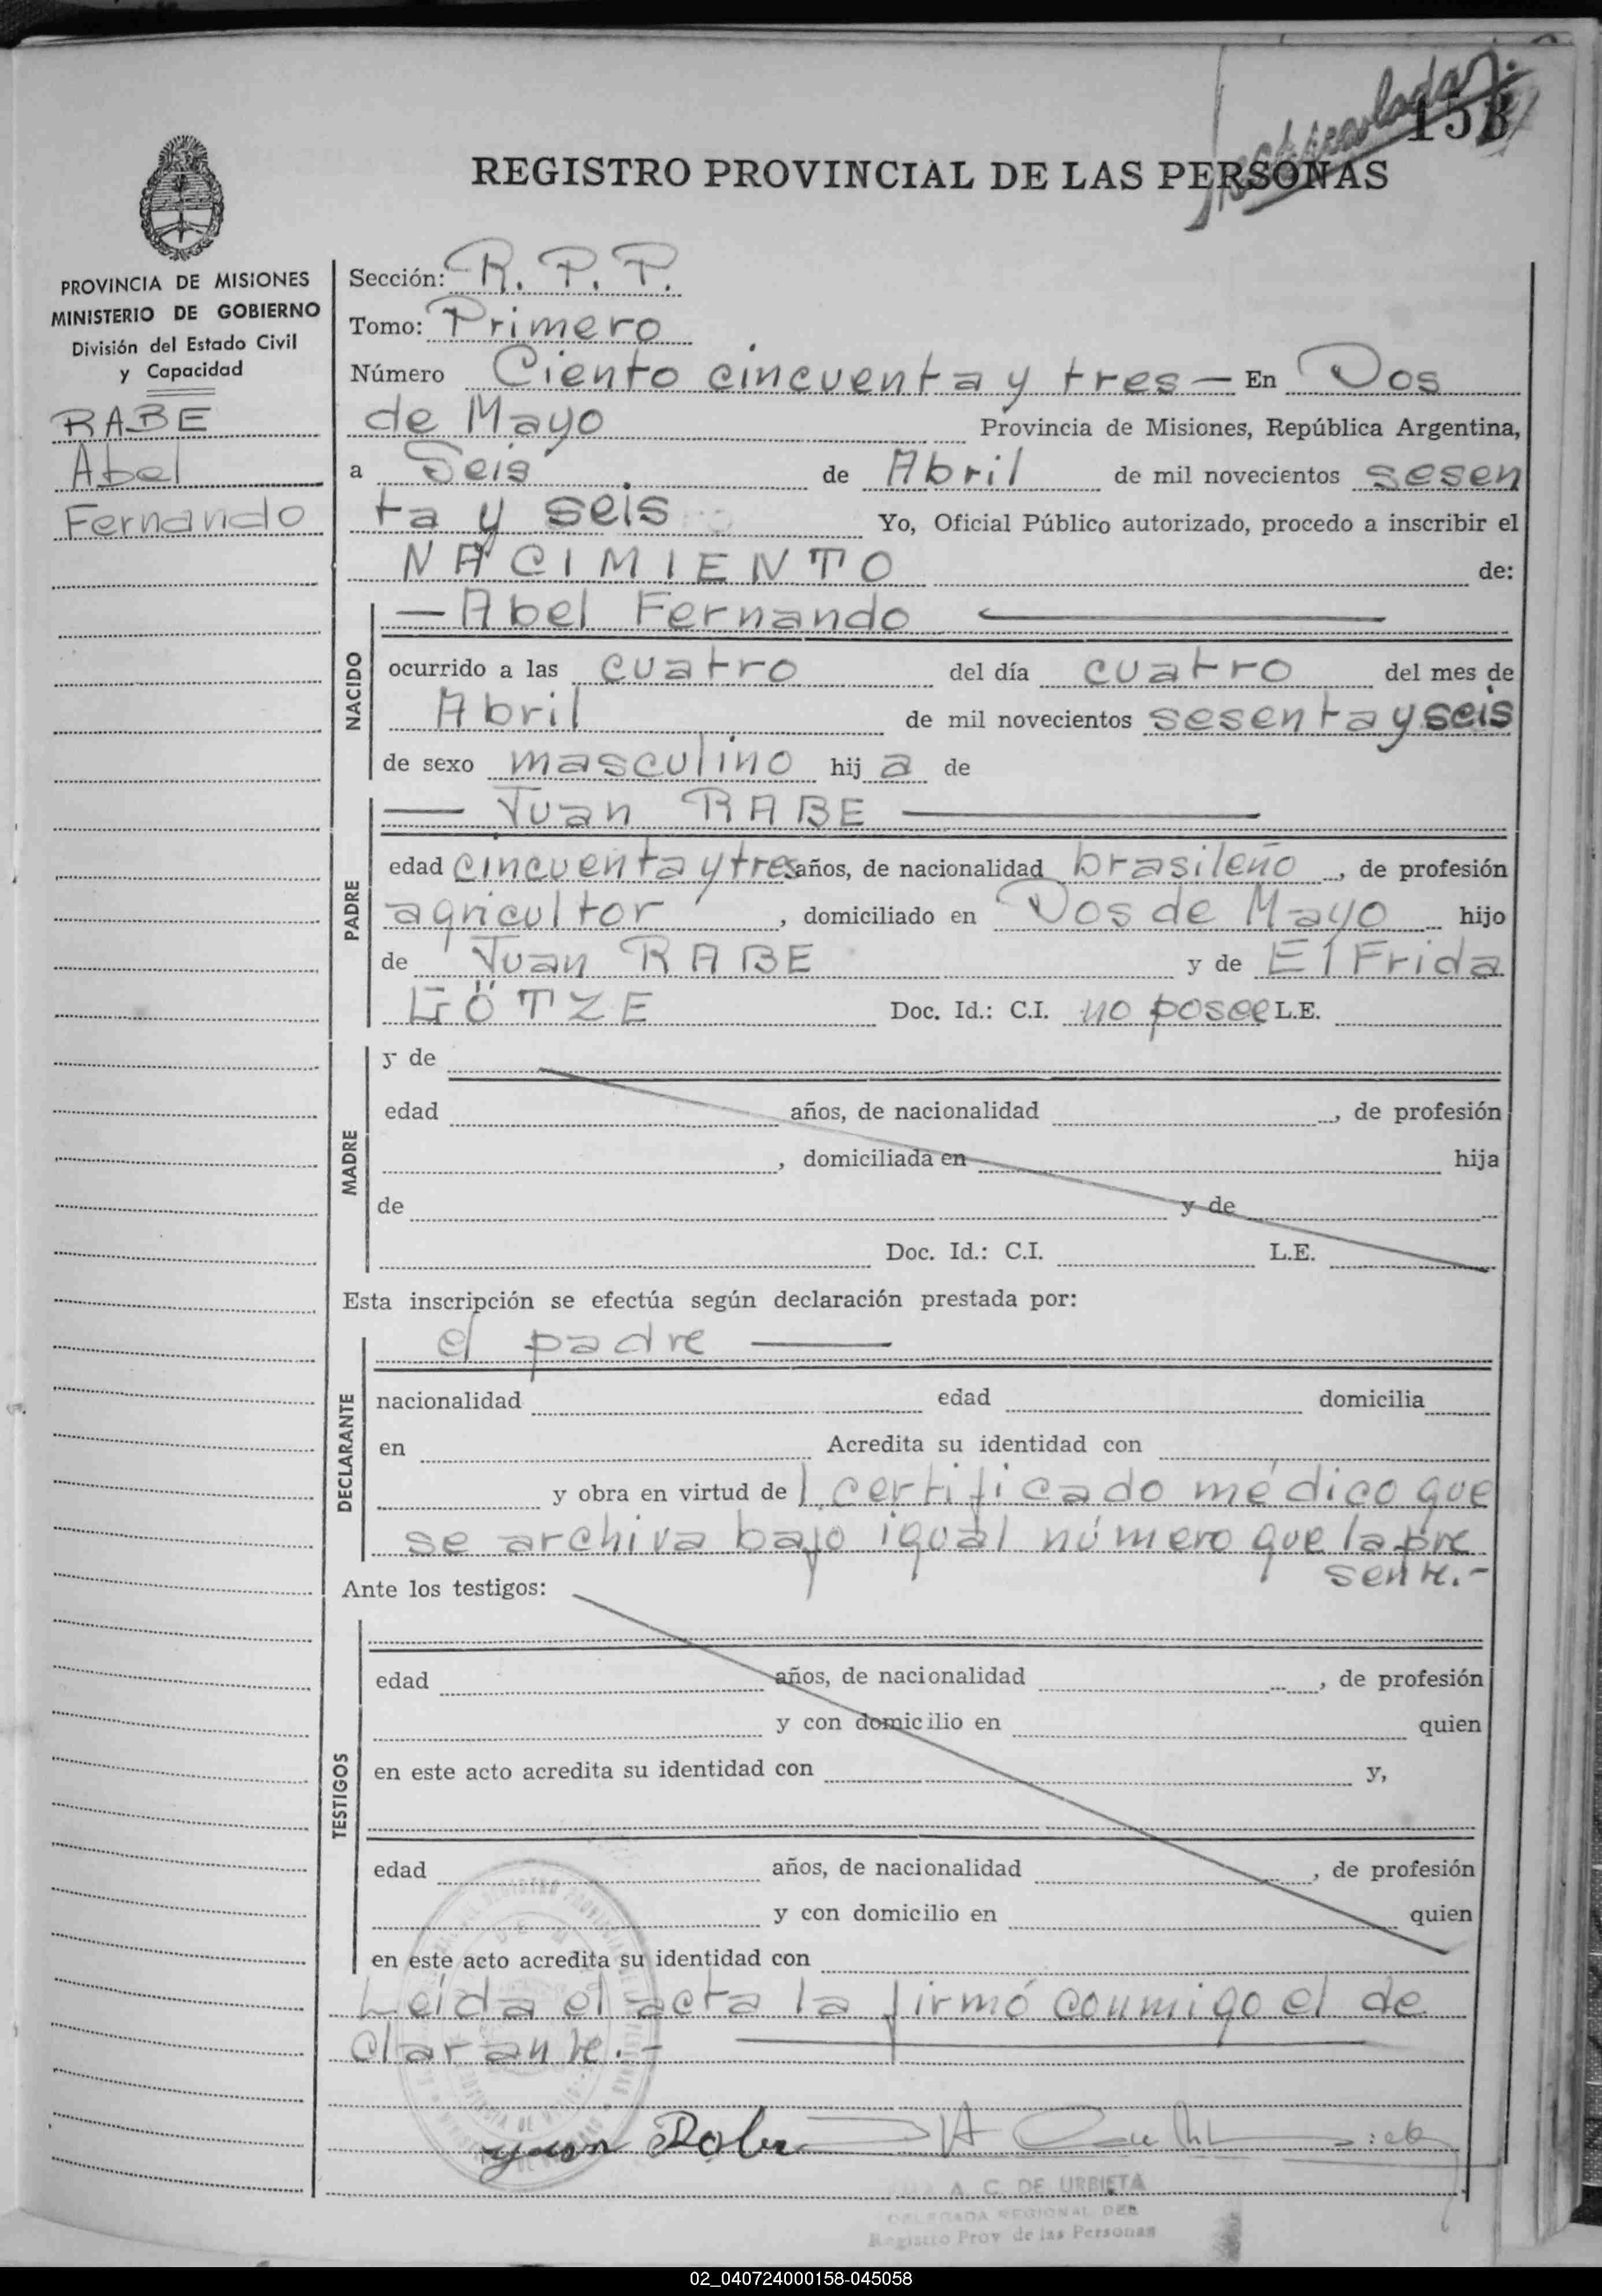 153
REGISTRO PROVINCIAL DE LAS PERSONAS
PROVINCIA DE MISIONES
MINISTERIO DE GOBIERNO
División del Estado Civil
y Capacidad
RABE
Abel
Fernando
Sección: R. P. P.
Tomo: Primero
Número Ciento cincuenta y tres — En Dos
de Mayo Provincia de Misiones, República Argentina,
a Seis de Abril de mil novecientos sesen
ta y seis Yo, Oficial Público autorizado, procedo a inscribir el
NACIMIENTO de:
NACIDO
— Abel Fernando —
ocurrido a las cuatro del día cuatro del mes de
Abril de mil novecientos sesenta y seis
de sexo masculino hij a de
PADRE
— Juan RABE —
edad cincuenta y tres años, de nacionalidad brasileño, de profesión
agricultor, domiciliado en Dos de Mayo hijo
de Juan RABE y de ElFrida
GÖTZE Doc. Id.: C.I. no posee L.E.
MADRE
y de
edad años, de nacionalidad , de profesión
, domiciliada en hija
de y de
Doc. Id.: C.I. L.E.
Esta inscripción se efectúa según declaración prestada por:
DECLARANTE
el padre —
nacionalidad edad domicilia
en Acredita su identidad con
y obra en virtud de 1 certificado médico que
se archiva bajo igual número que la pre
sente.-
Ante los testigos:
TESTIGOS
edad años, de nacionalidad , de profesión
y con domicilio en quien
en este acto acredita su identidad con y,
edad años, de nacionalidad , de profesión
y con domicilio en quien
en este acto acredita su identidad con
Leída el acta la firmó conmigo el de
clarante.-
A. C. DE URBIETA
DELEGADA REGIONAL DEL
Registro Prov de las Personas
02_040724000158-045058